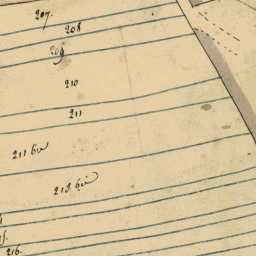 207.
208
209
210
211
211 bis
216.